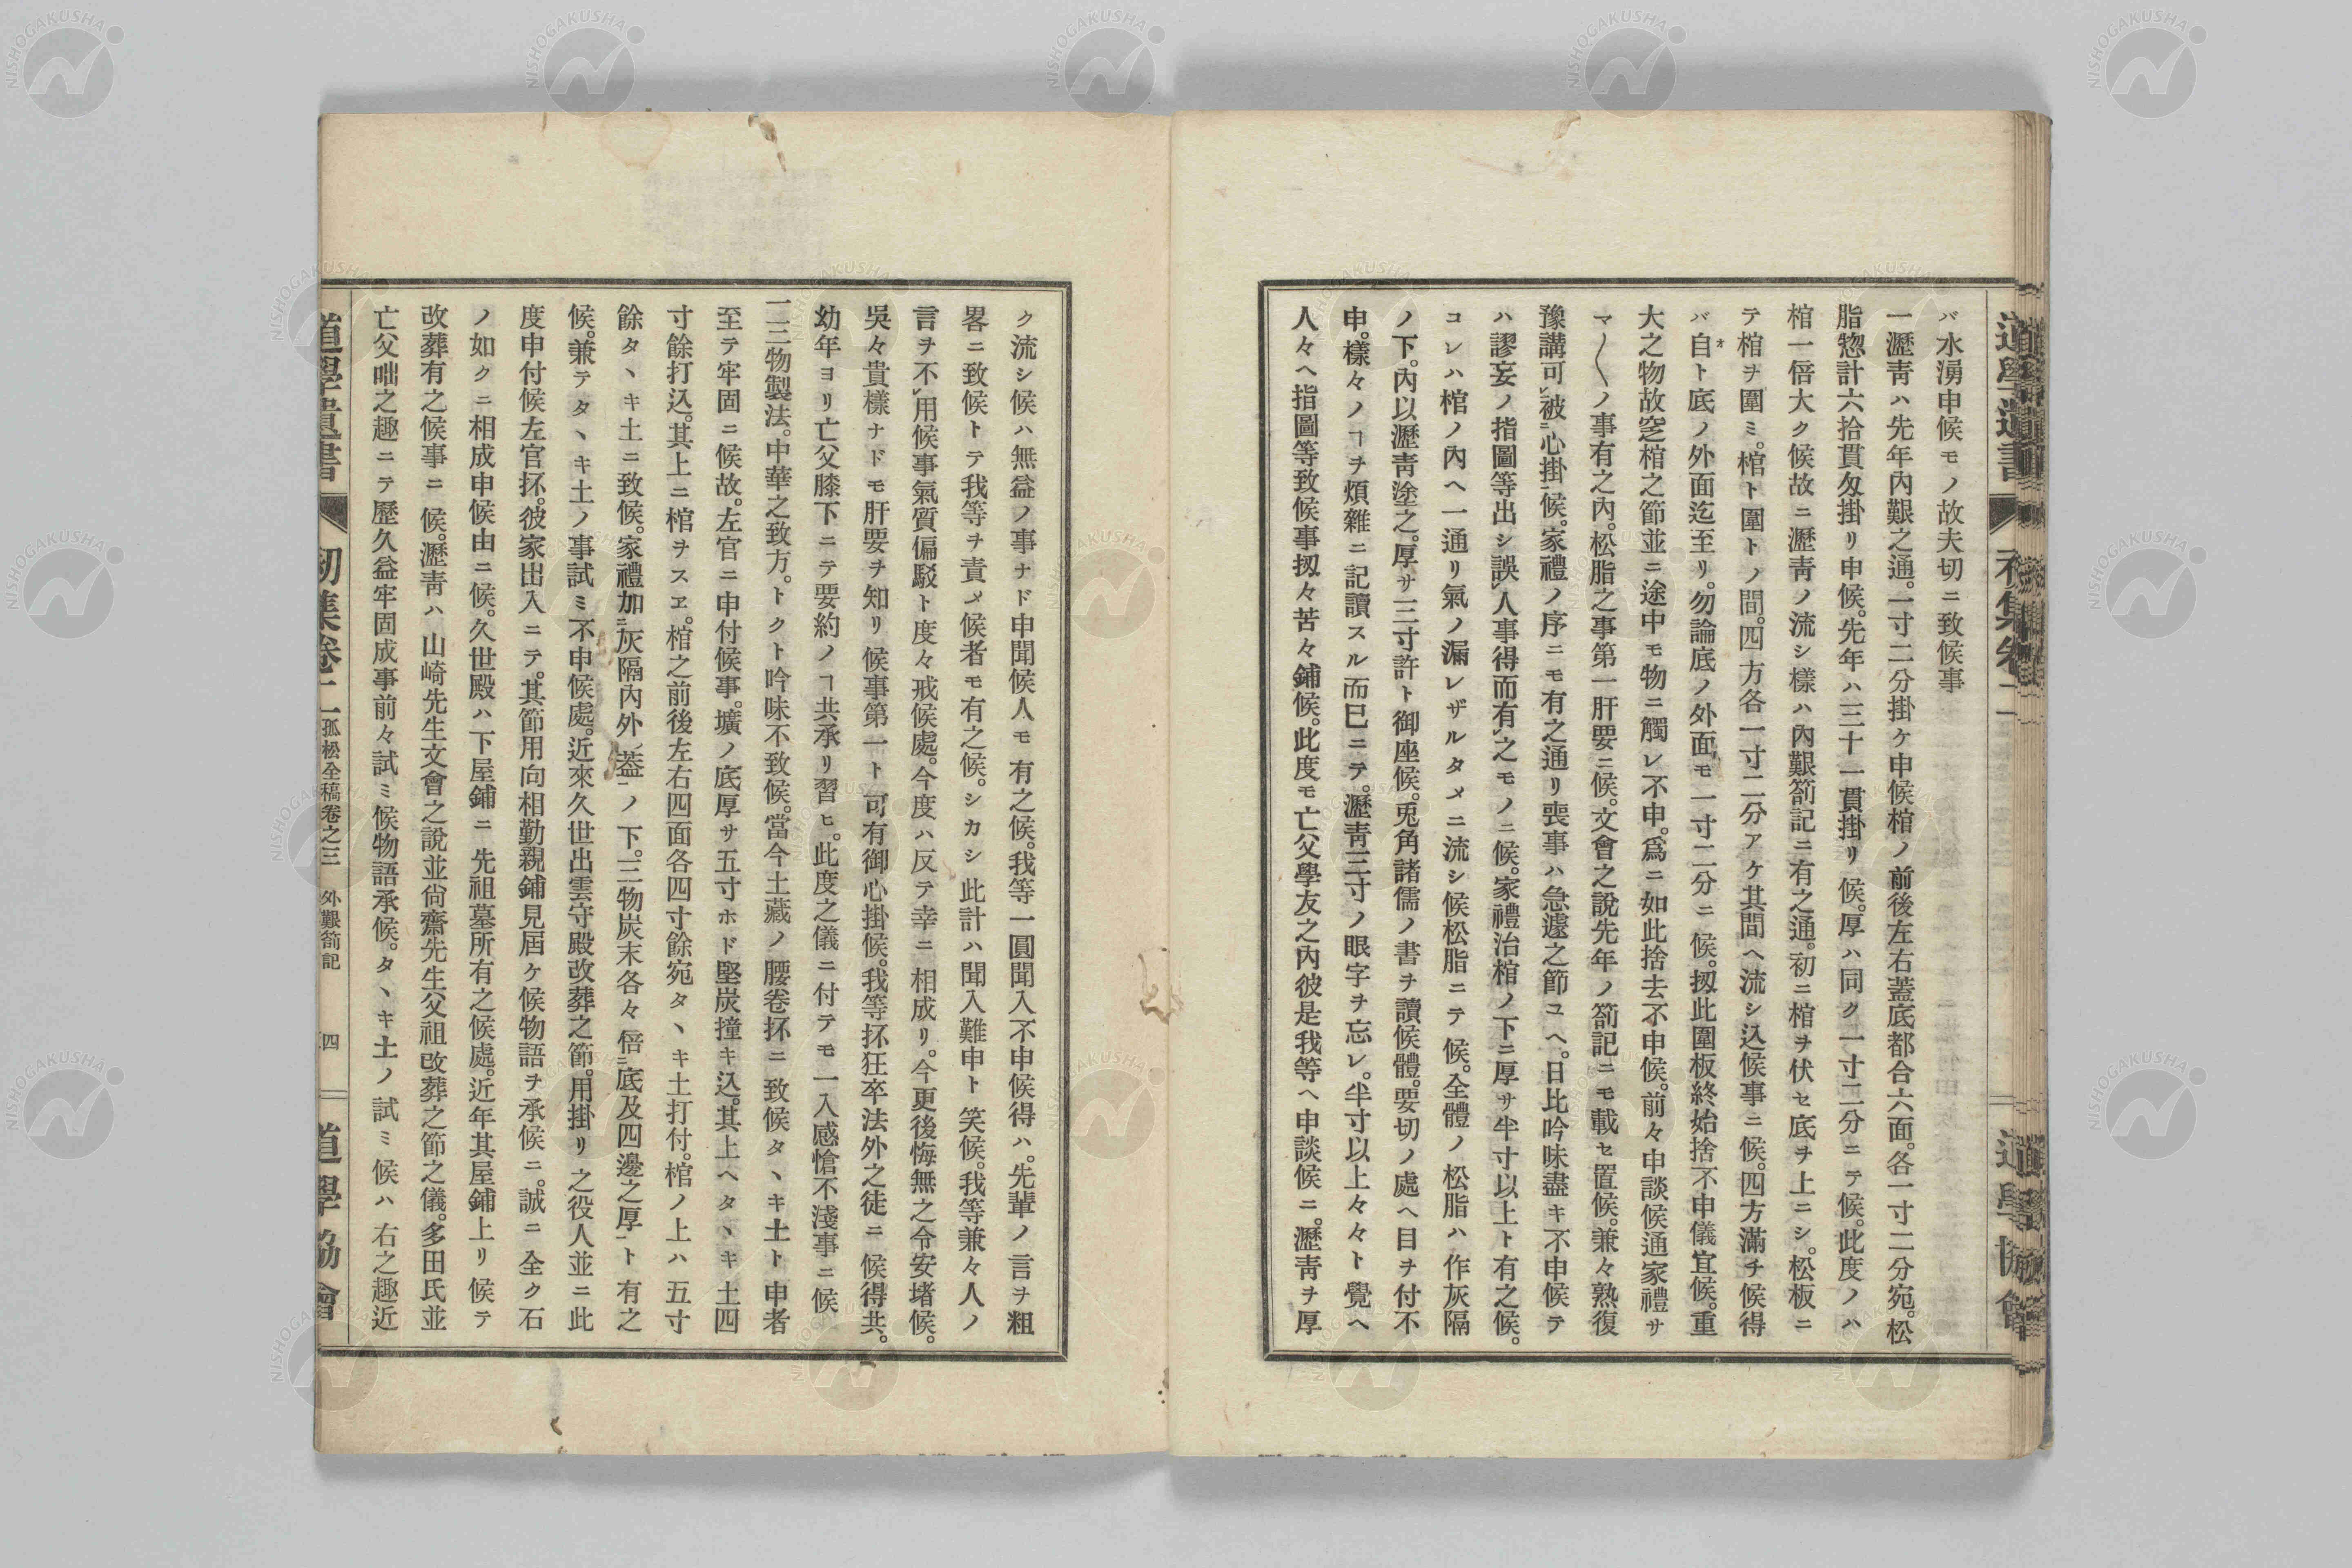 バ水湧申候モノ故夫切ニ致候事
一瀝靑ハ先年內艱之通。一寸二分掛ケ申候棺ノ前後左右蓋底都合六面。各一寸二分宛。松
脂惣計六拾貫匁掛リ申候。先年ハ三十一貫掛リ候。厚ハ同ク一寸二分ニテ候。此度ノハ
棺一倍大ク候故ニ瀝靑ノ流シ樣ハ內艱箚記ニ有之通。初ニ棺ヲ伏セ底ヲ上ニシ。松板ニ
テ棺ヲ圍ミ。棺ト圍トノ間。四方各一寸二分アケ其間ヘ流シ込候事ニ候。四方滿チ候得
バ自ト底ノ外面迄至リ。勿論底ノ外面モ一寸二分ニ候。扨此圍板終始捨不申儀宜候。重
大之物故窆棺之節並ニ途中モ物ニ觸レ不申。爲ニ如此捨去不申候。前々申談候通家禮サ
マ〱ノ事有之內。松脂之事第一肝要ニ候。文會之說先年ノ箚記ニモ載セ置候。兼々熟復
豫講可被心掛候。家禮ノ序ニモ有之通リ喪事ハ急遽之節ユヘ。日比吟味盡キ不申候テ
ハ謬妄ノ指圖等出シ誤人事得而有之モノニ候。家禮治棺ノ下ニ厚サ半寸以上ト有之候。
コレハ棺ノ內ヘ一通リ氣ノ漏レザルタメニ流シ候松脂ニテ候。全體ノ松脂ハ作灰隔
ノ下。內以瀝靑塗之。厚サ三寸許ト御座候。兎角諸儒ノ書ヲ讀候體。要切ノ處ヘ目ヲ付不
申。樣々ノヿヲ煩雜ニ記讀スル而已ニテ。瀝靑三寸ノ眼字ヲ忘レ。半寸以上々々ト覺ヘ
人々ヘ指圖等致候事扨々苦々鋪候。此度モ亡父學友之內彼是我等ヘ申談候ニ。瀝靑ヲ厚
ク流シ候ハ無益ノ事ナド申聞候人モ有之候。我等一圓聞入不申候得ハ。先輩ノ言ヲ粗
畧ニ致候トテ我等ヲ責メ候者モ有之候。シカシ此計ハ聞入難申ト笑候。我等兼々人ノ
言ヲ不用候事氣質偏駁ト度々戒候處。今度ハ反テ幸ニ相成リ。今更後悔無之令安堵候。
吳々貴樣ナドモ肝要ヲ知リ候事第一ト可有御心掛候。我等抔狂卒法外之徒ニ候得共。
幼年ヨリ亡父膝下ニテ要約ノヿ共承リ習ヒ。此度之儀ニ付テモ一入感愴不淺事ニ候
一三物製法。中華之致方。トクト吟味不致候。當今土藏ノ腰卷抔ニ致候タヽキ土ト申者
至テ牢固ニ候故。左官ニ申付候事。壙ノ底厚サ五寸ホド堅炭撞キ込。其上ヘタヽキ土四
寸餘打込。其上ニ棺ヲスヱ。棺之前後左右四面各四寸餘宛タヽキ土打付。棺ノ上ハ五寸
餘タヽキ土ニ致候。家禮加灰隔內外蓋ノ下。三物炭末各々倍底及四邊之厚ト有之
候。兼テタヽキ土ノ事試ミ不申候處。近來久世出雲守殿改葬之節。用掛リ之役人並ニ此
度申付候左官抔。彼家出入ニテ。其節用向相勤親鋪見屆ケ候物語ヲ承候ニ。誠ニ全ク石
ノ如クニ相成申候由ニ候。久世殿ハ下屋鋪ニ先祖墓所有之候處。近年其屋鋪上リ候テ
改葬有之候事ニ候。瀝靑ハ山崎先生文會之說並尙齋先生父祖改葬之節之儀。多田氏並
亡父咄之趣ニテ歷久益牢固成事前々試ミ候物語承候。タヽキ土ノ試ミ候ハ右之趣近
道學遺書 初集卷二 孤松全稿卷之三 外艱箚記 四 道學協會